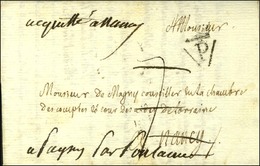 acquitté a Nancy
A Monsieur
P
Monsieur De Magny conseiller en la chambre
des comptes et cour des de Lorraine
Nancy
a pagny par Pont a